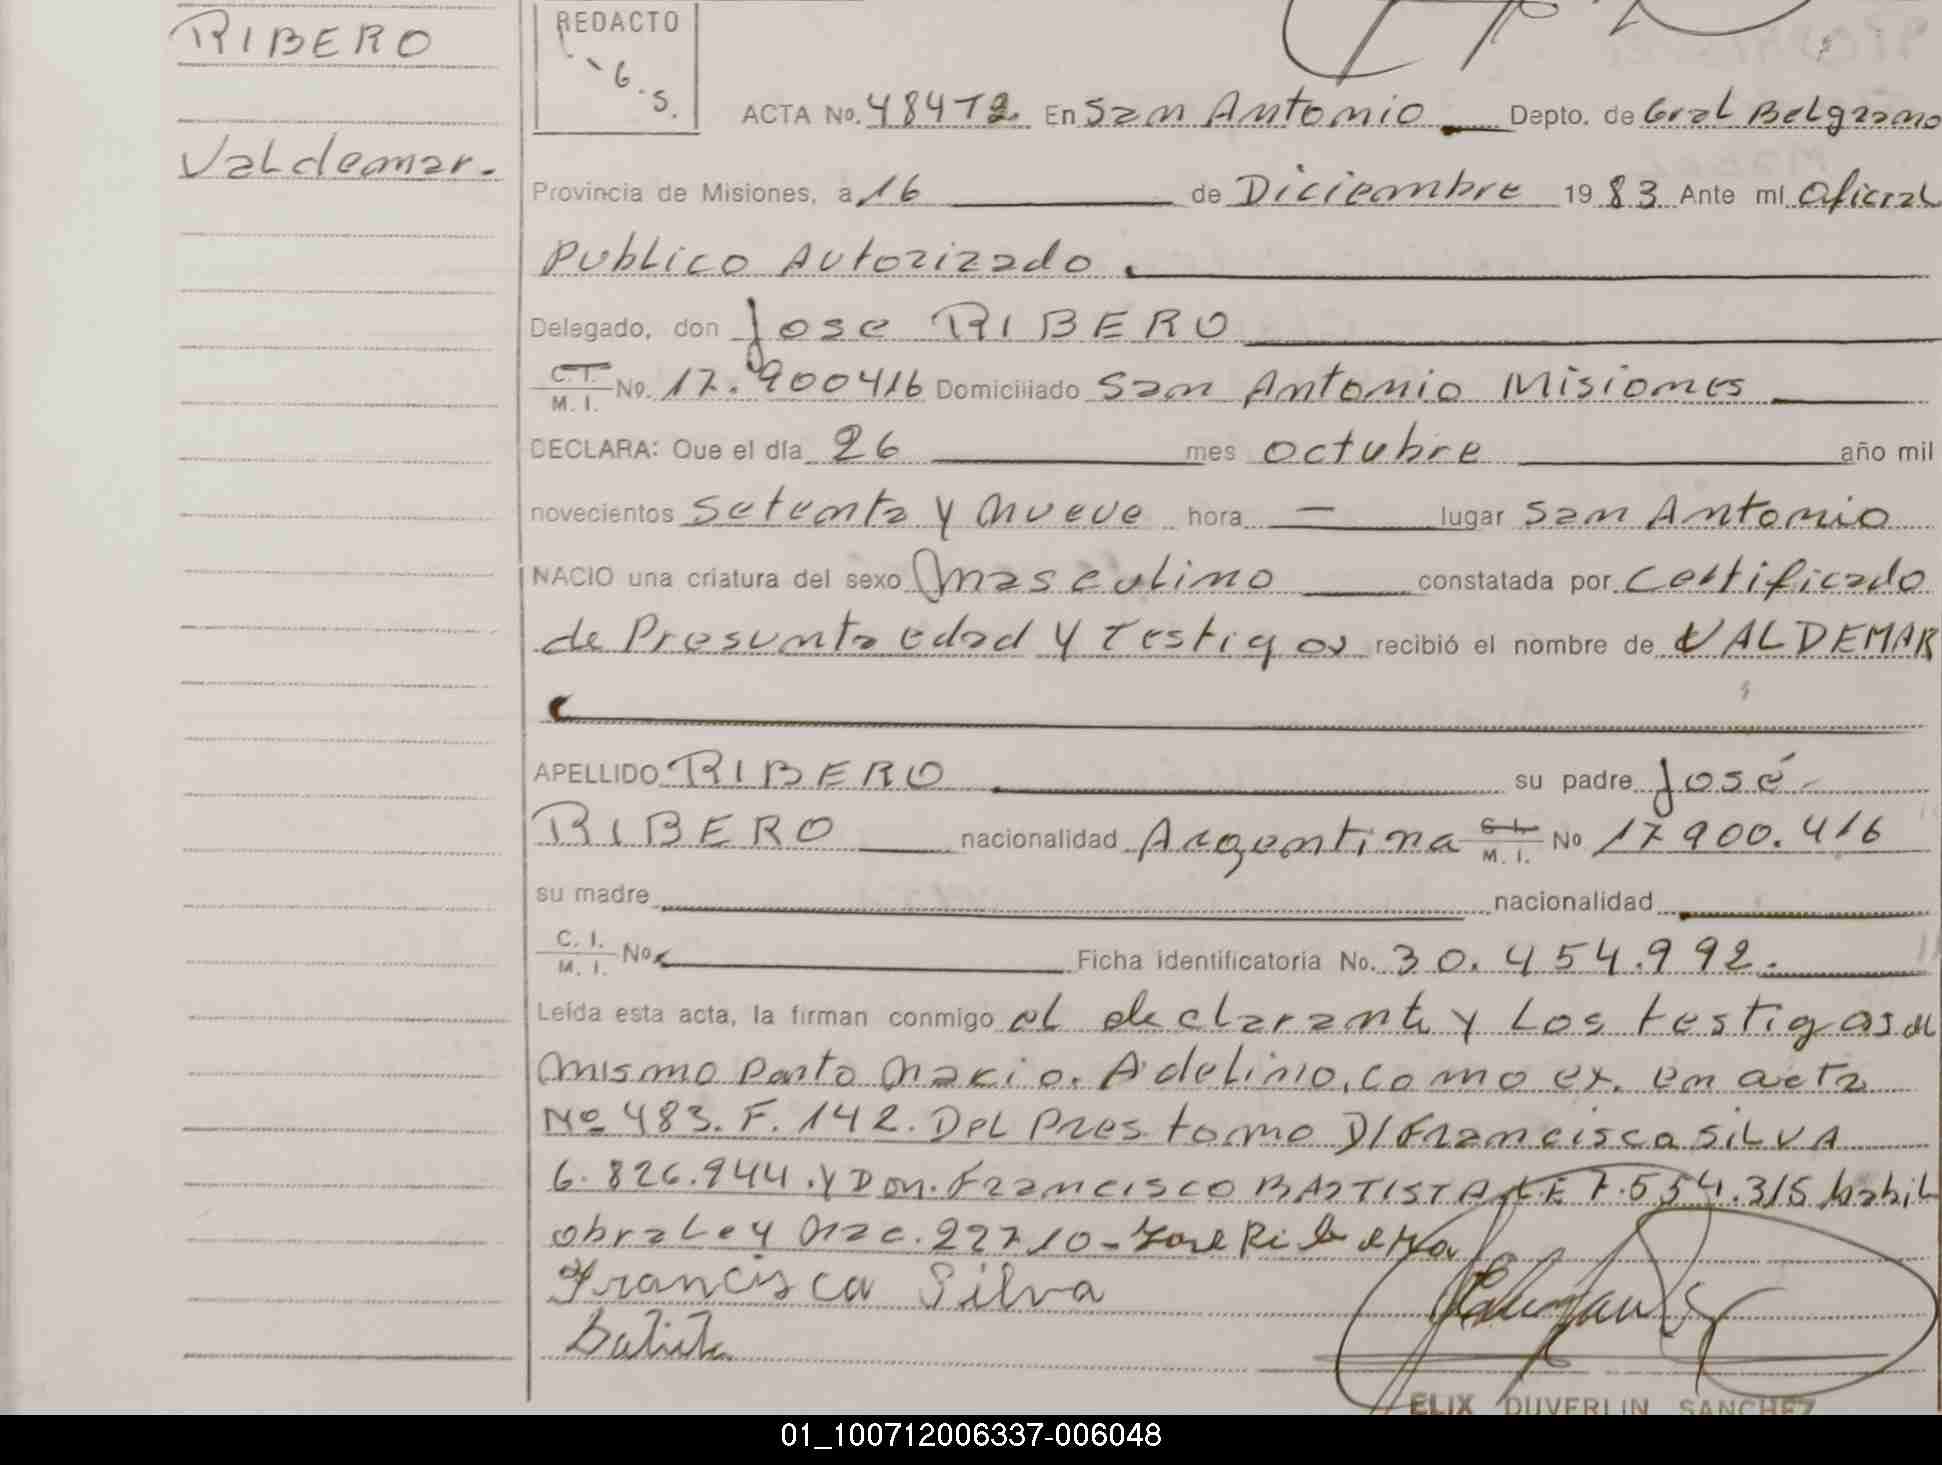 RIBERO
Valdemar.
REDACTO
G.S.
ACTA No. 484 T2. En San Antonio Depto. de Gral Belgrano
Provincia de Misiones, a 16 de Diciembre 1983 Ante mí Oficial
Publico Autorizado.
Delegado, don Jose RIBERO
C.I. M. I. No. 17.900416 Domiciliado San Antonio Misiones
DECLARA: Que el día 26 mes octubre año mil
novecientos setenta y nueve hora — lugar San Antonio
NACIO una criatura del sexo Masculino constatada por Certificado
de Presunta edad y Testigos recibió el nombre de VALDEMAR
APELLIDO RIBERO su padre José
RIBERO nacionalidad Argentina C.I. M. I. No 17900.416
su madre nacionalidad
C. I. M. I. No. Ficha identificatoria No. 30.454.992.
Leída esta acta, la firman conmigo el declarante y Los testigos del
mismo Parto Adelino, como ex. en acta
Nº 483. F. 142. Del Pres tomo D/ Francisca SILVA
6.826.944. y Don. Francisco BATISTA LE 7.554.315 habil
obra Ley Nac. 22710 - Jose Ribero
Francisca Silva
Batista
ELIX DUVERLIN SANCHEZ
01_100712006337-006048